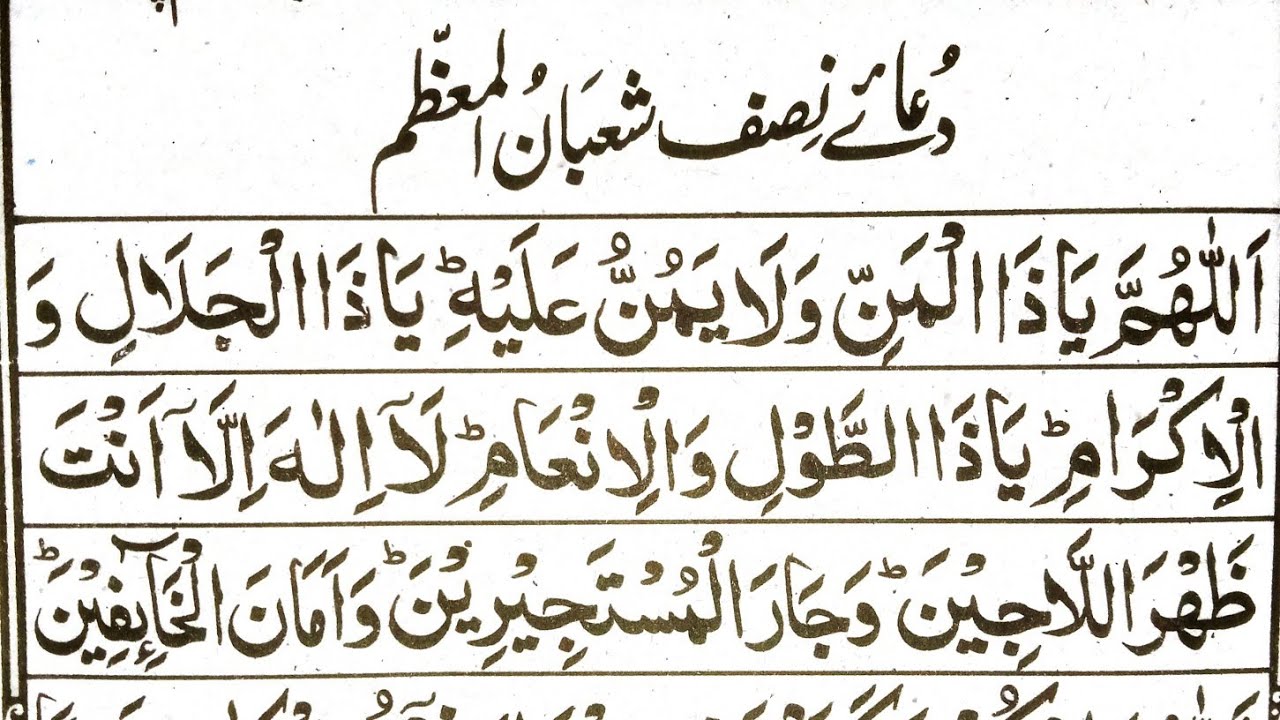 دُعائے نِصف شعبَانُ المعظّم
اَللّٰهُمَّ يَاذَا الْمَنِّ وَلَا يَمُنُّ عَلَيْهِ ؕ يَاذَا الْجَلَالِ وَ
الْاِكْرَامِ ؕ يَاذَا الطَّوْلِ وَالْاِنْعَامِ ؕ لَآ اِلٰهَ اِلَّآ اَنْتَ
ظَهْرَ اللَّاجِيْنَ ؕ وَجَارَ الْمُسْتَجِيْرِيْنَ ؕ وَاَمَانَ الْخَآئِفِيْنَ ؕ